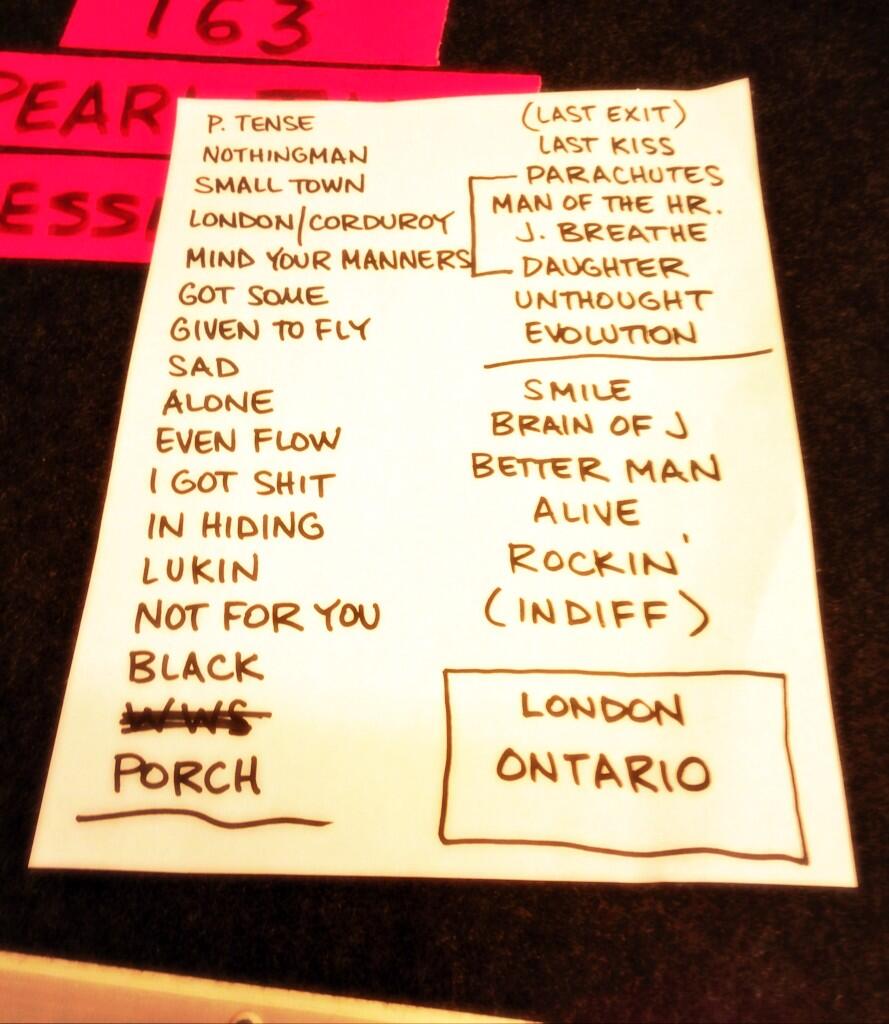 163
PEARL
ESSI
P. TENSE
NOTHINGMAN
SMALL TOWN
LONDON/CORDUROY
MIND YOUR MANNERS
GOT SOME
GIVEN TO FLY
SAD
ALONE
EVEN FLOW
I GOT SHIT
IN HIDING
LUKIN
NOT FOR YOU
BLACK
WWS
PORCH
(LAST EXIT)
LAST KISS
PARACHUTES
MAN OF THE HR.
J. BREATHE
DAUGHTER
UNTHOUGHT
EVOLUTION
SMILE
BRAIN OF J
BETTER MAN
ALIVE
ROCKIN'
(INDIFF)
LONDON
ONTARIO